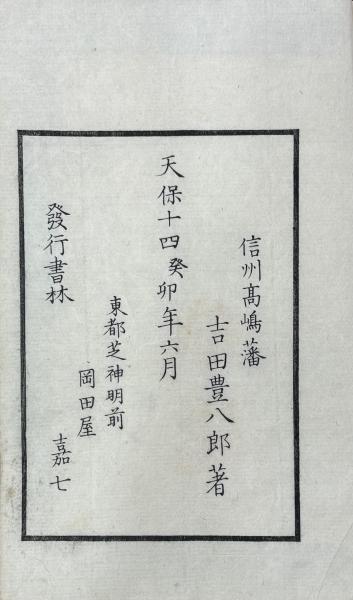 信州髙嶋藩
吉田豊八郎著
天保十四癸卯年六月
東都芝神明前
岡田屋嘉七
發行書林